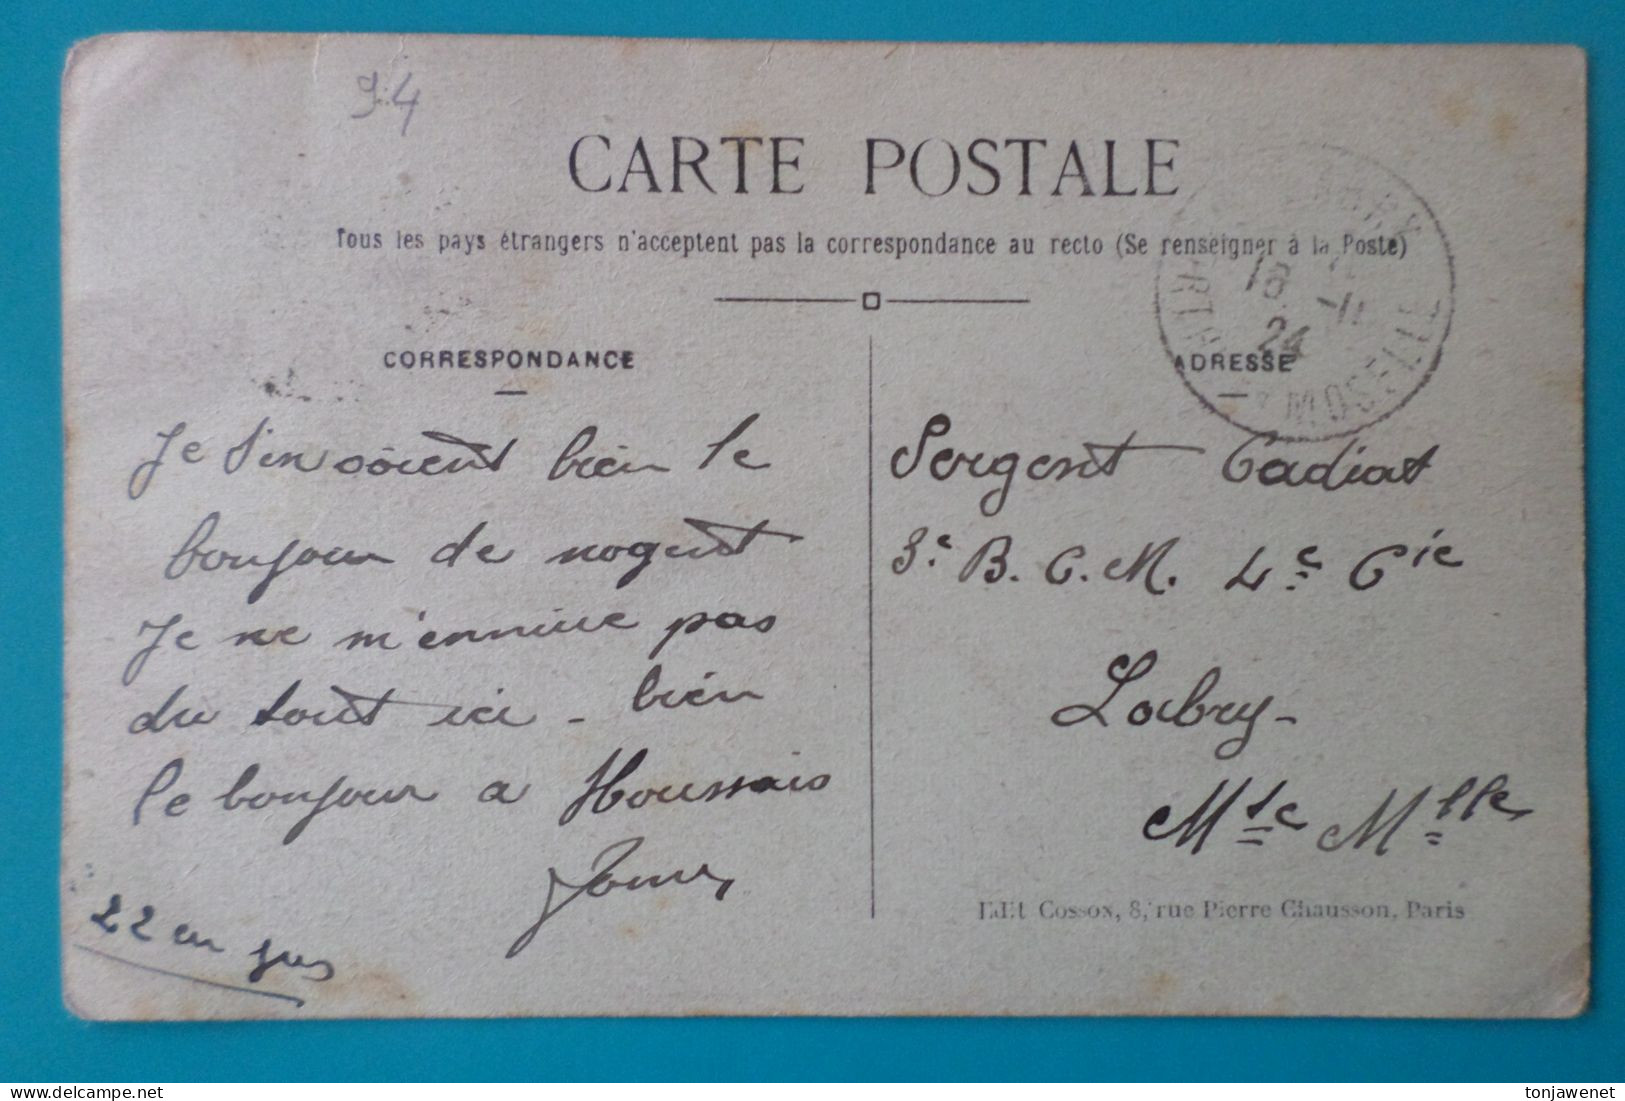 94
CARTE POSTALE
Tous les pays étrangers n'acceptent pas la correspondance au recto (Se renseigner à la Poste)
CORRESPONDANCE
Je bien le
bonjour de nogent
Je ne m'ennuie pas
du tout ici - bien
le bonjour a Houssais
22 en jus
ADRESSE
Sergent Cadiat
3e B. C. M. 4e Cie
Labry-
Mte Mlle
Edit Cosson, 8, rue Pierre Chausson, Paris
LABRY
18 -11
24
MOSELLE
tonjawenet